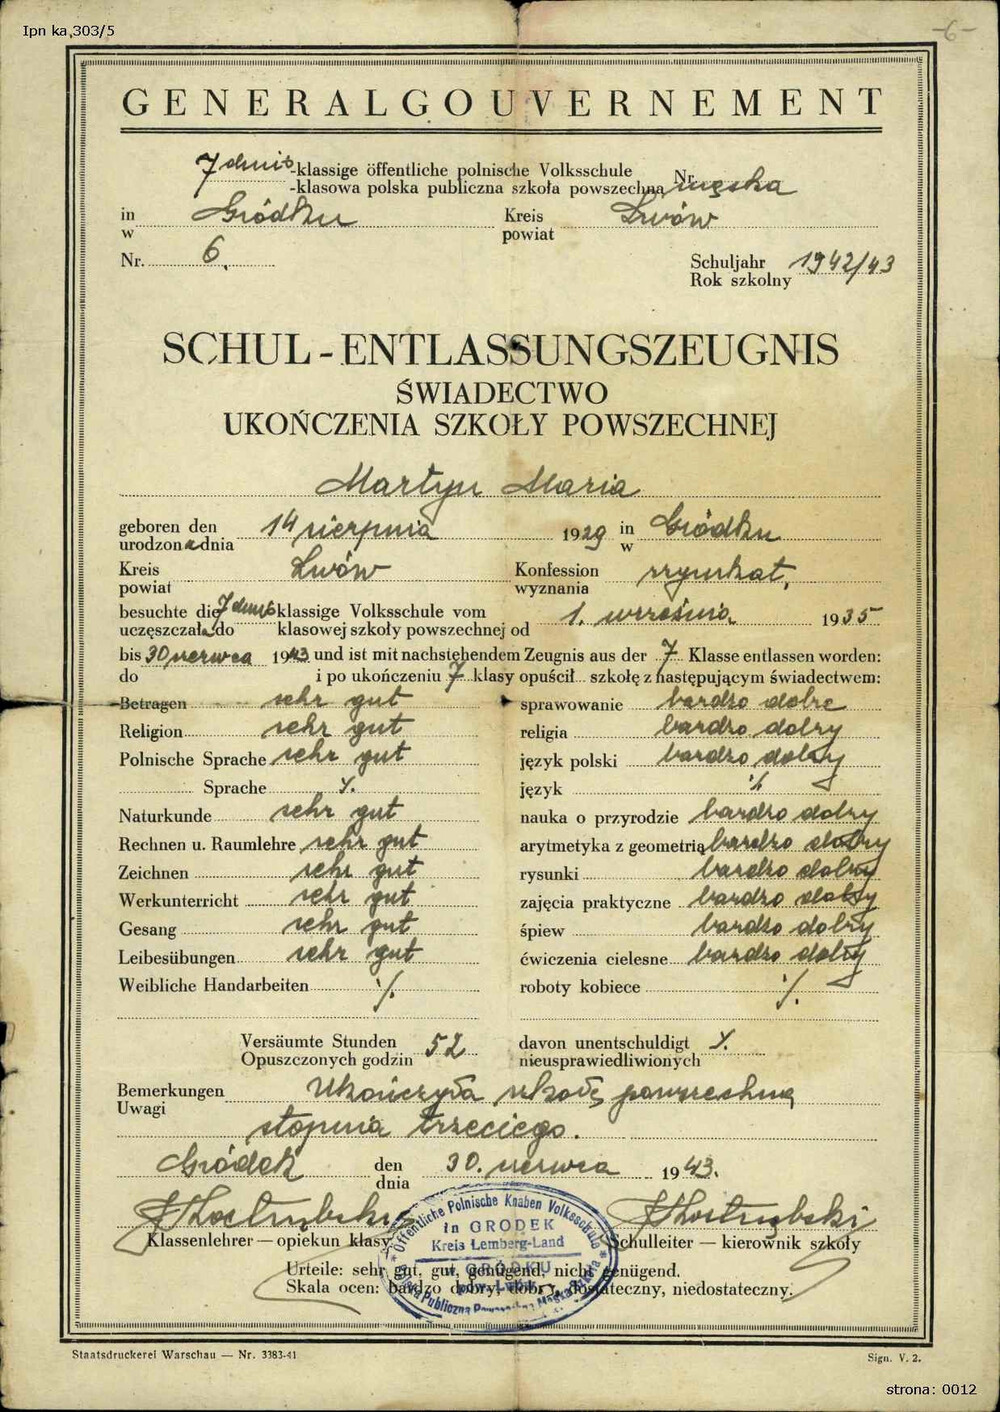 Ipn ka,303/5
-6-
GENERALGOUVERNEMENT
7 -klassige öffentliche polnische Volksschule
-klasowa polska publiczna szkoła powszechna Nr. męska
in Gródku Kreis Lwów
w powiat
Nr. 6. Schuljahr 1942/43
Rok szkolny
SCHUL-ENTLASSUNGSZEUGNIS
ŚWIADECTWO
UKOŃCZENIA SZKOŁY POWSZECHNEJ
Martyn Maria
geboren den 14 sierpnia 1929 in Gródku
urodzona dnia w
Kreis Lwów Konfession rzymkat.
powiat wyznania
besuchte die 7 klassige Volksschule vom 1. września 1935
uczęszczała do klasowej szkoły powszechnej od
bis 30 czerwca 1943 und ist mit nachstehendem Zeugnis aus der 7 Klasse entlassen worden:
do i po ukończeniu 7 klasy opuścił szkołę z następującym świadectwem:
Betragen sehr gut sprawowanie bardzo dobre
Religion sehr gut religia bardzo dobry
Polnische Sprache sehr gut język polski bardzo dobry
Sprache %. język %
Naturkunde sehr gut nauka o przyrodzie bardzo dobry
Rechnen u. Raumlehre sehr gut arytmetyka z geometrią bardzo dobry
Zeichnen sehr gut rysunki bardzo dobry
Werkunterricht sehr gut zajęcia praktyczne bardzo dobry
Gesang sehr gut śpiew bardzo dobry
Leibesübungen sehr gut ćwiczenia cielesne bardzo dobry
Weibliche Handarbeiten %. roboty kobiece %.
Versäumte Stunden 52 davon unentschuldigt %.
Opuszczonych godzin nieusprawiedliwionych
Bemerkungen Ukończyła szkołę powszechną
Uwagi
stopnia trzeciego.
Gródek den 30. czerwca 1943.
dnia
Kostrzębski Kostrzębski
Klassenlehrer — opiekun klasy Schulleiter — kierownik szkoły
Öffentliche Polnische Knaben Volksschule
in GRODEK
Kreis Lemberg-Land
w GRÓDKU
Publiczna Powszechna Męska Szkoła
Urteile: sehr gut, gut, genügend, nicht genügend.
Skala ocen: bardzo dobry, dobry, dostateczny, niedostateczny.
Staatsdruckerei Warschau — Nr. 3383-41 Sign. V. 2.
strona: 0012